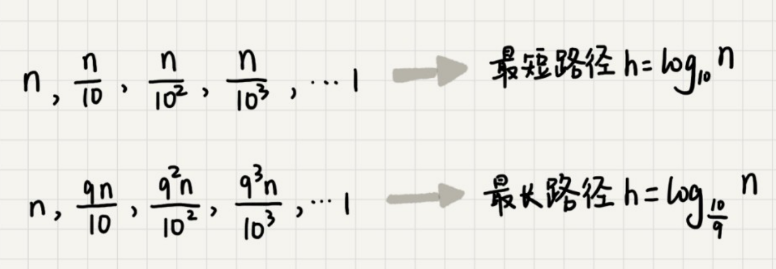 n, n/10, n/10², n/10³, ··· 1 最短路径 h = log₁₀ n
n, 9n/10, 9²n/10², 9³n/10³, ··· 1 最长路径 h = log_(10/9) n